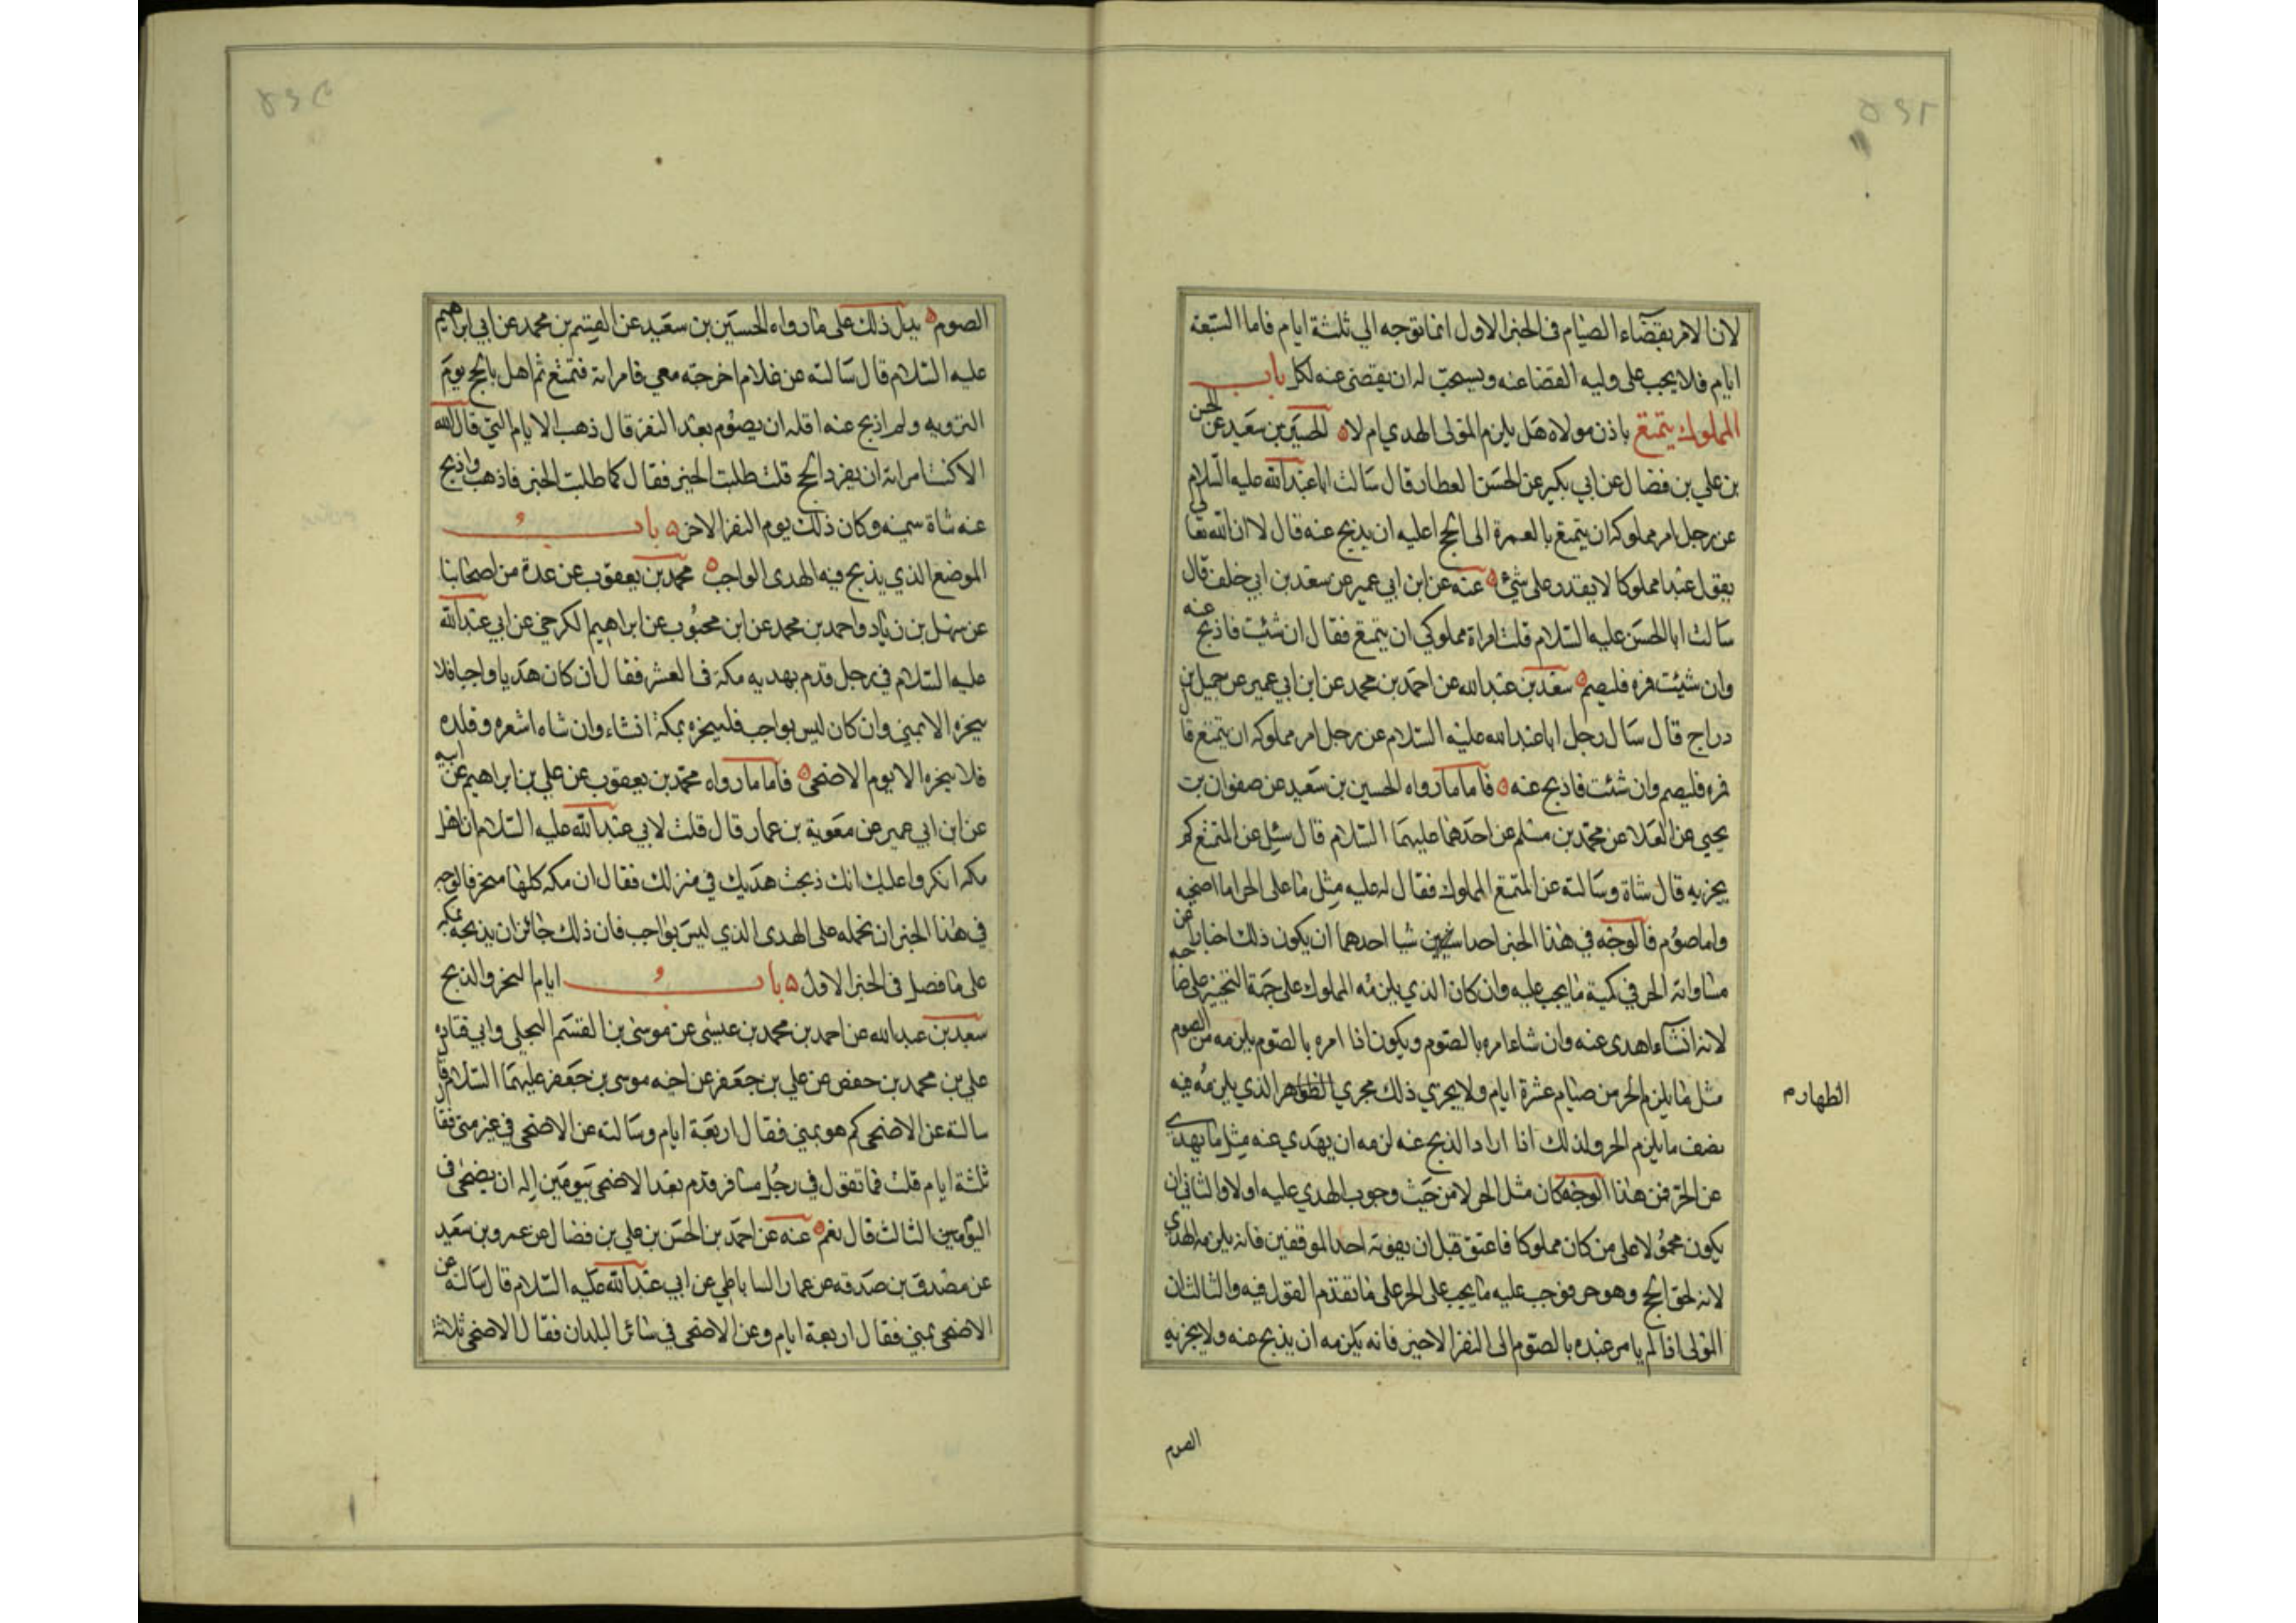 لان الامر بقضاء الصيام فى الخبر الاول انما توجه الي ثلثة ايام فاما السبعة
ايام فلا يجب على وليه القضا عنه ويستحب له ان يقضى عنه لكل باب
المملوك يتمتع باذن مولاه هل يلزم المولى الهدي ام لا الحسين بن سعيد عن الحسن
بن علي بن فضال عن ابي بكير عن الحسن العطار قال سالت ابا عبدالله عليه السلام
عن رجل امر مملوكه ان يتمتع بالعمرة الى الحج اعليه ان يذبح عنه قال لا ان الله تعالى
يقول عبدا مملوكا لا يقدر على شيء عنه عن ابن ابي عمير عن سعد بن ابي خلف قال
سالت ابا الحسن عليه السلام قلت امراة مملوكي ان يتمتع فقال ان شئت فاذبح عنه
وان شيئت فره فليصم سعد بن عبدالله عن احمد بن محمد عن ابن ابي عمير عن جميل بن
دراج قال سال رجل ابا عبدالله عليه السلام عن رجل امر مملوكه ان يتمتع قا
فره فليصم وان شئت فاذبح عنه فاما ما رواه الحسين بن سعيد عن صفوان بن
يحيي عن العلا عن محمد بن مسلم عن احدهما عليهما السلام قال سئل عن المتمتع كم
يجزيه قال شاة وسالته عن المتمتع المملوك فقال له عليه مثل ما على الحر اما اضحيه
واما صوم فالوجه في هذا الخبر احد شيا احدهما ان يكون ذلك اخبارا عن
مساواته الحر في كمية ما يجب عليه وان كان الذي يلزمه المملوك على جهة التخيير على
لانه انشاء اهدى عنه وان شاء امره بالصوم ويكون اذا امره بالصوم يلزمه من الصوم
مثل ما يلزم الحر من صيام عشرة ايام ولا يجري ذلك مجري الظهار الذي يلزمه فيه
نصف ما يلزم الحر ولذلك اذا اراد الذبح عنه لزمه ان يهدي عنه مثل ما يهدي
عن الحر فمن هذا الوجه كان مثل الحر لا من حيث وجوب الهدي عليه اولا والثاني ان
يكون محمولا على من كان مملوكا فاعتق قبل ان يفوته احد الموقفين فانه يلزمه الهدي
لانه لحق الحج وهو حر فوجب عليه ما يجب على الحر على ما تقدم القول فيه والثالث ان
المولى اذا لم يامر عبده بالصوم الى النفر الاخير فانه يلزمه ان يذبح عنه ولا يجزيه
الصوم
الصوم يدل ذلك على ما رواه الحسين بن سعيد عن القسم بن محمد عن ابي ابراهيم
عليه السلام قال سالته عن غلام اخرجته معي فامرته فتمتع ثم اهل بالحج يوم
الترويه ولم اذبح عنه افله ان يصوم بعد النفر قال ذهب الايام التي قال الله
الا كنت امرته ان يفرد الحج قلت طلبت الخير فقال كما طلبت الخير فاذهب واذبح
عنه شاة سمينه وكان ذلك يوم النفر الاخر باب
الموضع الذي يذبح فيه الهدى الواجب محمد بن يعقوب عن عدة من اصحابنا
عن سهل بن زياد واحمد بن محمد عن ابن محبوب عن ابراهيم الكرخي عن ابي عبدالله
عليه السلام في رجل قدم بهديه مكة فى العشر فقال ان كان هديا واجبا فلا
ينحره الا بمنى وان كان ليس بواجب فلينحره بمكة انشاء وان شاء اشعره وقلده
فلا ينحره الا يوم الاضحى فاما ما رواه محمد بن يعقوب عن علي بن ابراهيم عن ابيه
عن ابن ابي عمير عن معوية بن عمار قال قلت لابي عبدالله عليه السلام ان اهل
مكه انكروا عليك انك ذبحت هديك في منزلك فقال ان مكه كلها منحر فالوجه
في هذا الخبر ان نحمله على الهدى الذي ليس بواجب فان ذلك جائز ان يذبحه بمكه
على ما فصل فى الخبر الاول باب ايام النحر والذبح
سعد بن عبدالله عن احمد بن محمد بن عيسى عن موسى بن القسم البجلي وابي قتاده
علي بن محمد بن حفص عن علي بن جعفر عن اخيه موسى بن جعفر عليهما السلام قال
سالته عن الاضحى كم هو بمنى فقال اربعة ايام وسالته عن الاضحى في غير منى فقا
ثلثة ايام قلت فما تقول في رجل مسافر قدم بعد الاضحى بيومين اله ان يضحى فى
اليوم الثالث قال نعم عنه عن احمد بن الحسن بن علي بن فضال عن عمرو بن سعيد
عن مصدق بن صدقه عن عمار الساباطي عن ابي عبدالله عليه السلام قال سالته عن
الاضحى بمنى فقال اربعة ايام وعن الاضحى في سائر البلدان فقال الاضحى ثلاثة